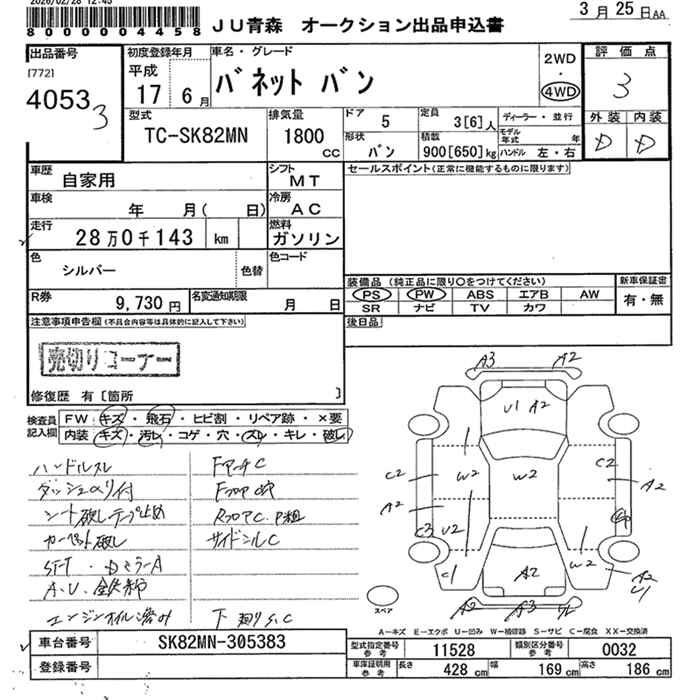 2026/02/28 12:45
800000004458
JU青森 オークション出品申込書
3月25日AA
出品番号
[772]
4053
3
初度登録年月
平成
17 6月
車名・グレード
バネット バン
2WD
・
4WD
評価点
3
外装 内装
D D
型式
TC-SK82MN
排気量
1800
CC
ドア 5
形状 バン
定員 3[6]人
積載 900[650]kg
ディーラー・並行
モデル年式 年
ハンドル 左・右
車歴
自家用
シフト
MT
車検
年 月( 日)
冷房
AC
走行
28万0千143 km
燃料
ガソリン
色
シルバー
色替
色コード
R券
9,730円
名変通知期限
月 日
セールスポイント(正常に機能するものに限ります)
装備品 (純正品に限り○をつけてください)
PS PW ABS エアB AW
SR ナビ TV カワ
新車保証書
有・無
後日品
注意事項申告欄(不具合内容等は具体的に記入して下さい)
売切りコーナー
修復歴 有 [箇所 ]
検査員記入欄
FW キズ・飛石・ヒビ割・リペア跡・×要
内装 キズ・汚レ・コゲ・穴・スレ・キレ・破レ
ハンドルスレ
シート破レテープ止め
カーペット破レ
FアーチC
RフロアC
サイドシルC
下廻りS.C
A3 A2
U1 A2
C2 W2 W2 C2
A2 A2
C3 U2
C1 W2
A2 A2
U1
A2 A3
スペア
A−キズ E−エクボ U−凹み W−補修跡 S−サビ C−腐食 XX−交換済
車台番号 SK82MN-305383
登録番号
型式指定番号 参考 11528
類別区分番号 参考 0032
車庫証明用 参考 長さ 428cm 幅 169cm 高さ 186cm